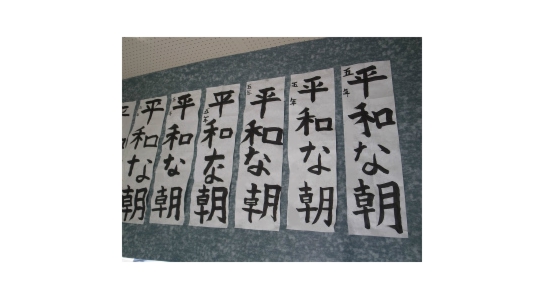 平和な朝
五年
平和な朝
五年
平和な朝
五年
平和な朝
五年
平和な朝
平和な朝
平和な朝